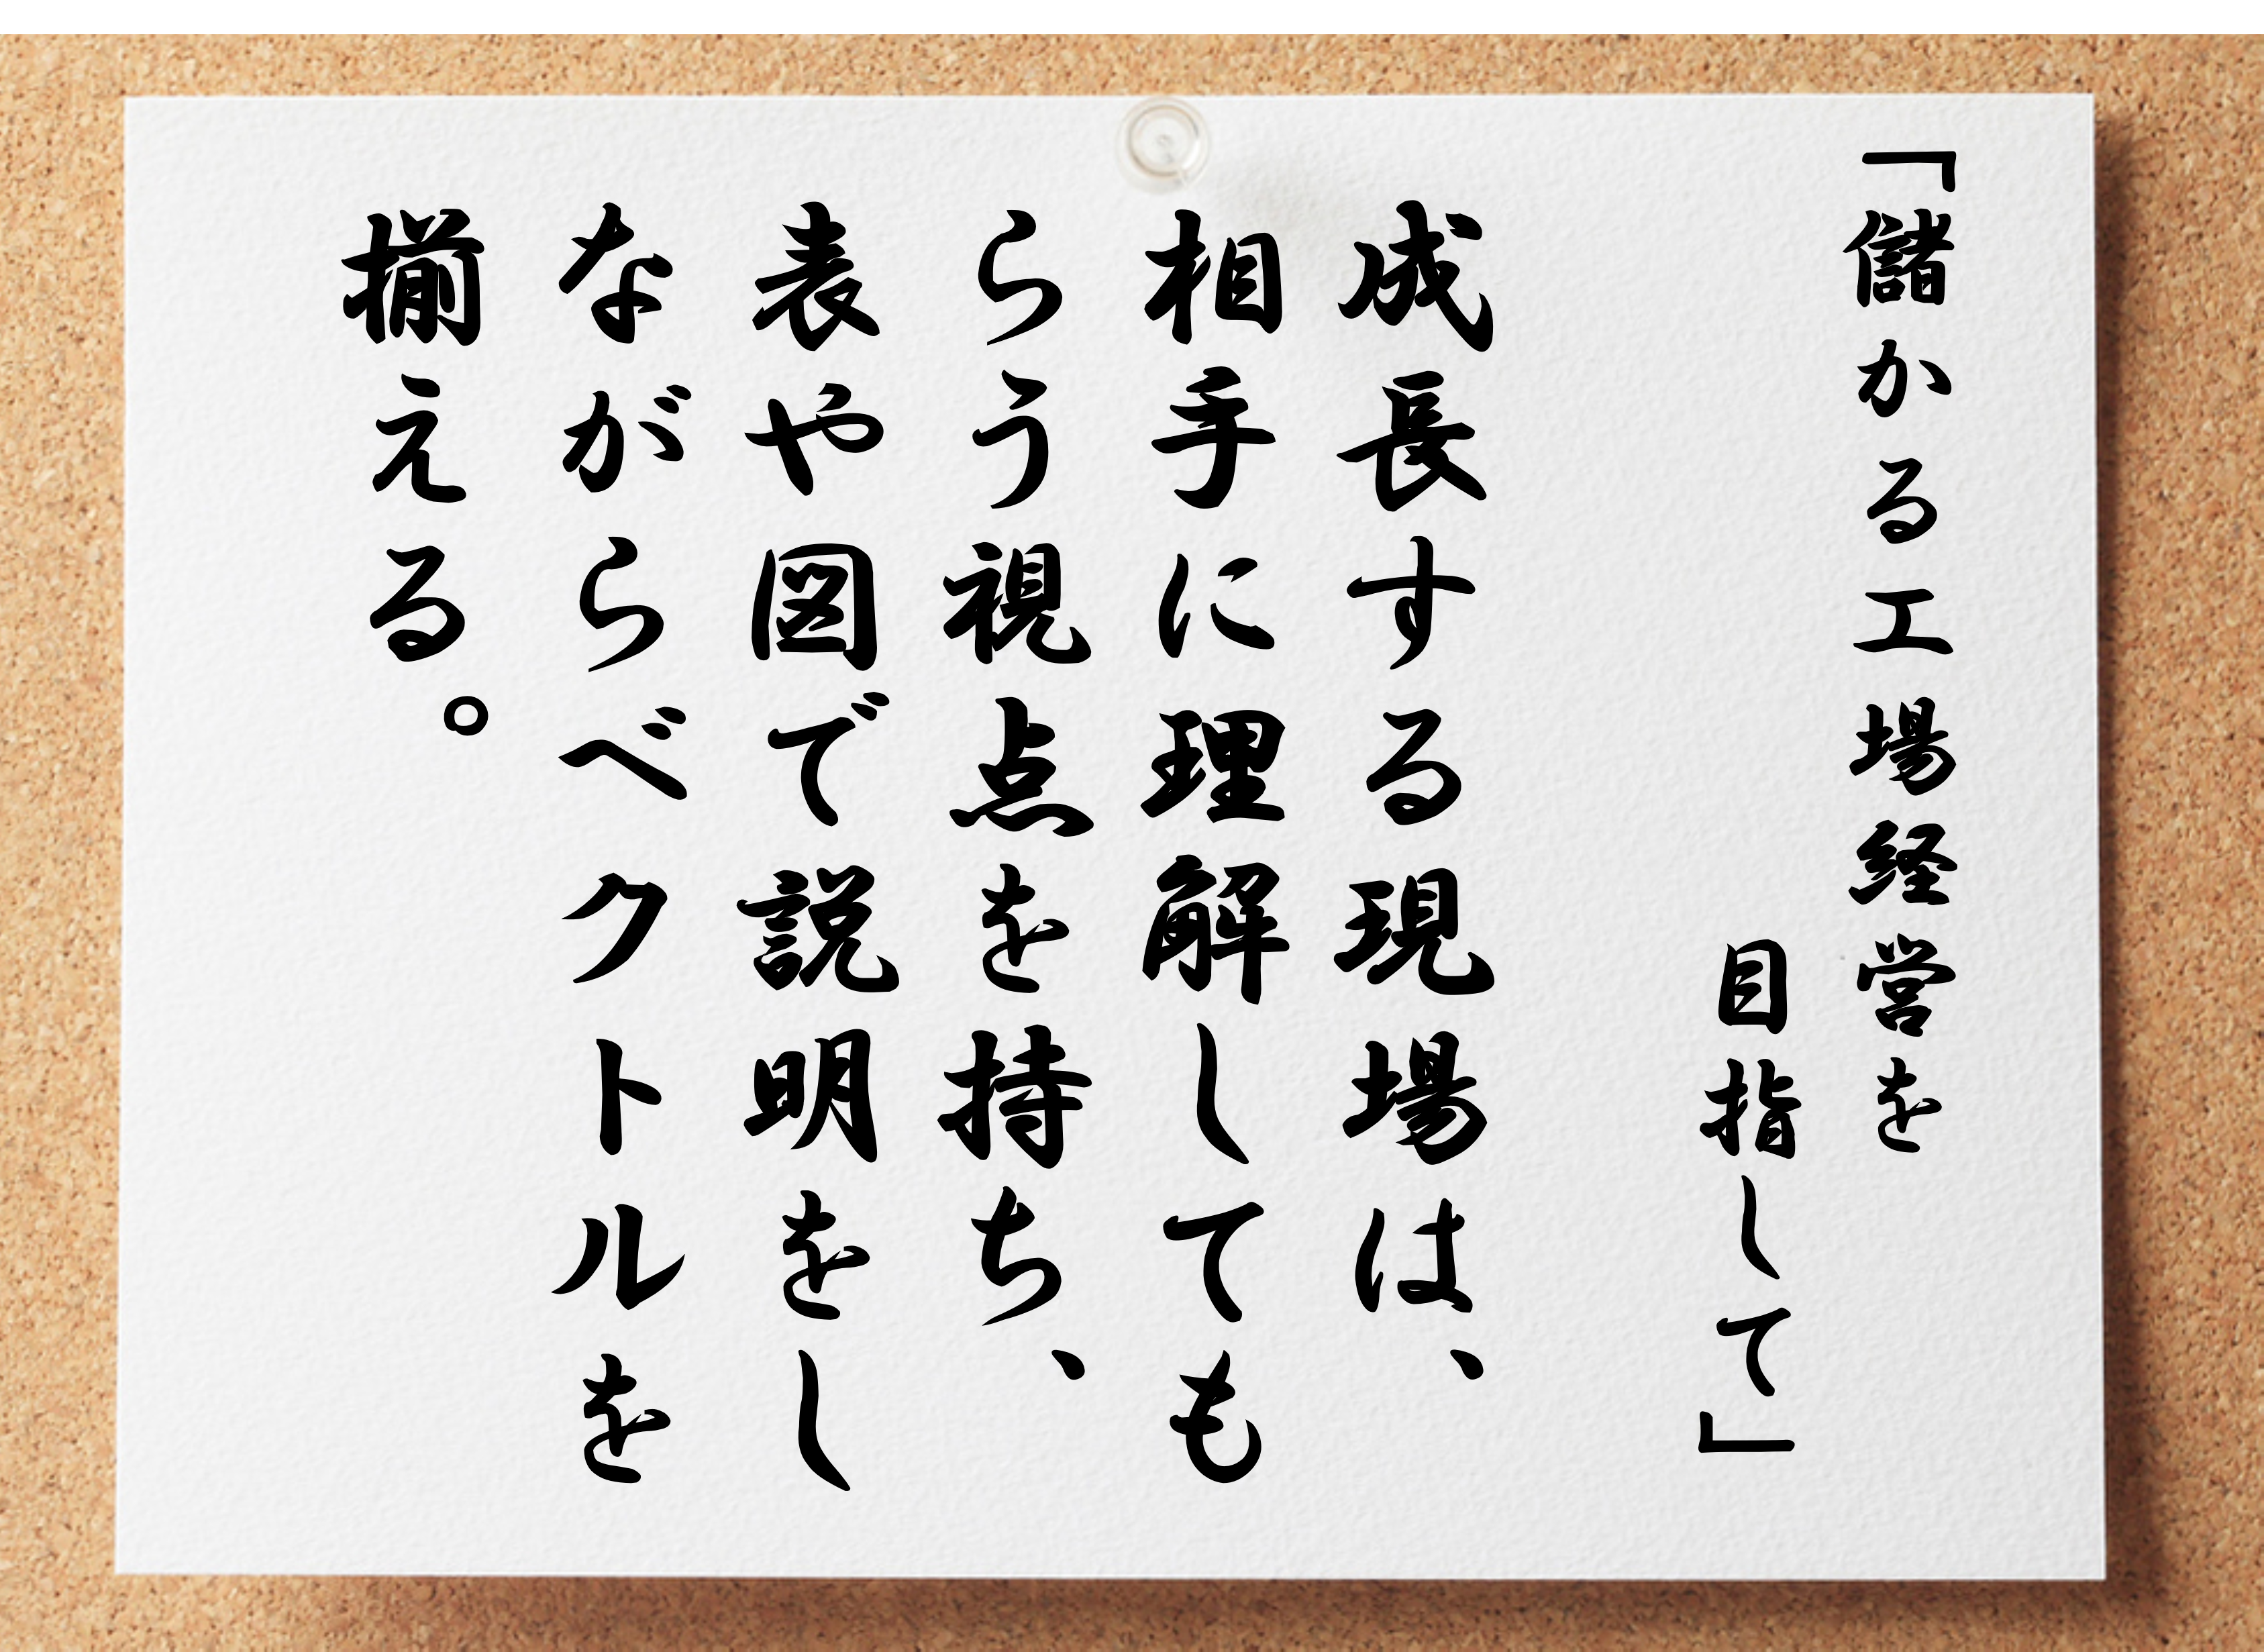 「儲かる工場経営を
目指して」
成長する現場は、
相手に理解しても
らう視点を持ち、
表や図で説明をし
ながらベクトルを
揃える。